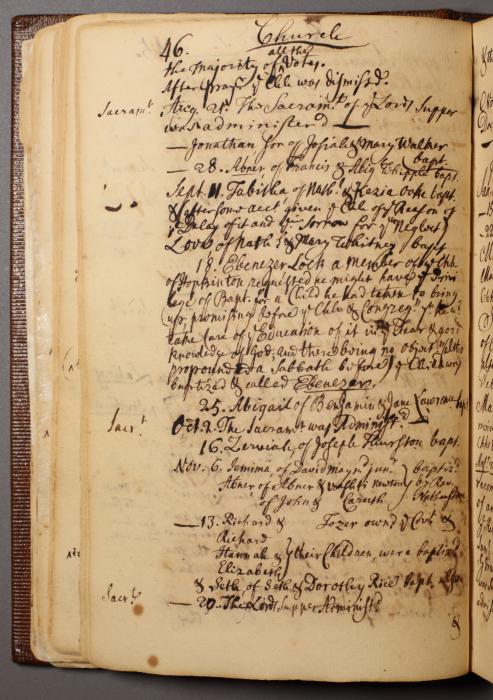 46. Church
all the
the majority of Votes.
After Pray.r ye Chh was dismised.
Sacramt. Aug. 21. The Sacramt of ye Lords Supper
was administerd —
— Jonathan Son of Josiah & Mary Walker
bapt.
— 28. Abner of Francis & Abig Whipple bapt.
Sept. 11. Tabitha of Nath. & Kezia bapt.
& after some acct given ye Chh of ye Reason of
ye Delay of it and their Sorrow for ye Neglect
Love of Nath & Mary Whitney bapt
18. Ebenezer Lock a member of ye Chh
of Hopkinton requested he might have ye Privi
lege of Bapt. for a Child he had taken to bring
up, promising before ye Chh & Congreg. yt he wd
take Care of ye Education of it in ye Fear & good
knowledge of God, and there being no object
propounded a Sabbath before ye Child was
baptized & called Ebenezer.
25. Abigail of Benjamin & Jane Lawrence bapt
Sacrt. Oct. 2. The Sacramt was Administred
16. Zerviah of Joseph Thurston bapt.
Nov. 6. Jemima of David mayn.d junr. baptiz.d
Abner of Abner & newton by Rev.
of John &
— 13. Richard & Tozer own'd ye Cov.t &
Richard
Hannah & their Children, were baptizd
Elizabeth
& Seth of Seth & Dorothy Rice bapt. also
Sacrt. — 20. The Lords Supper Administd
&